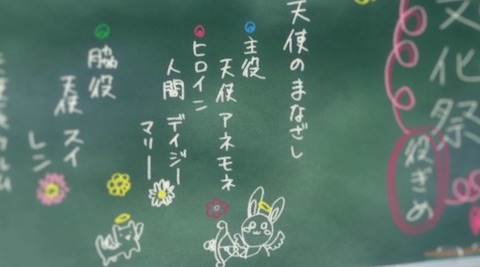 文化祭
役ぎめ
天使のまなざし
主役
天使 アネモネ
ヒロイン
人間 デイジー
マリー
脇役
天使 スイ
レン